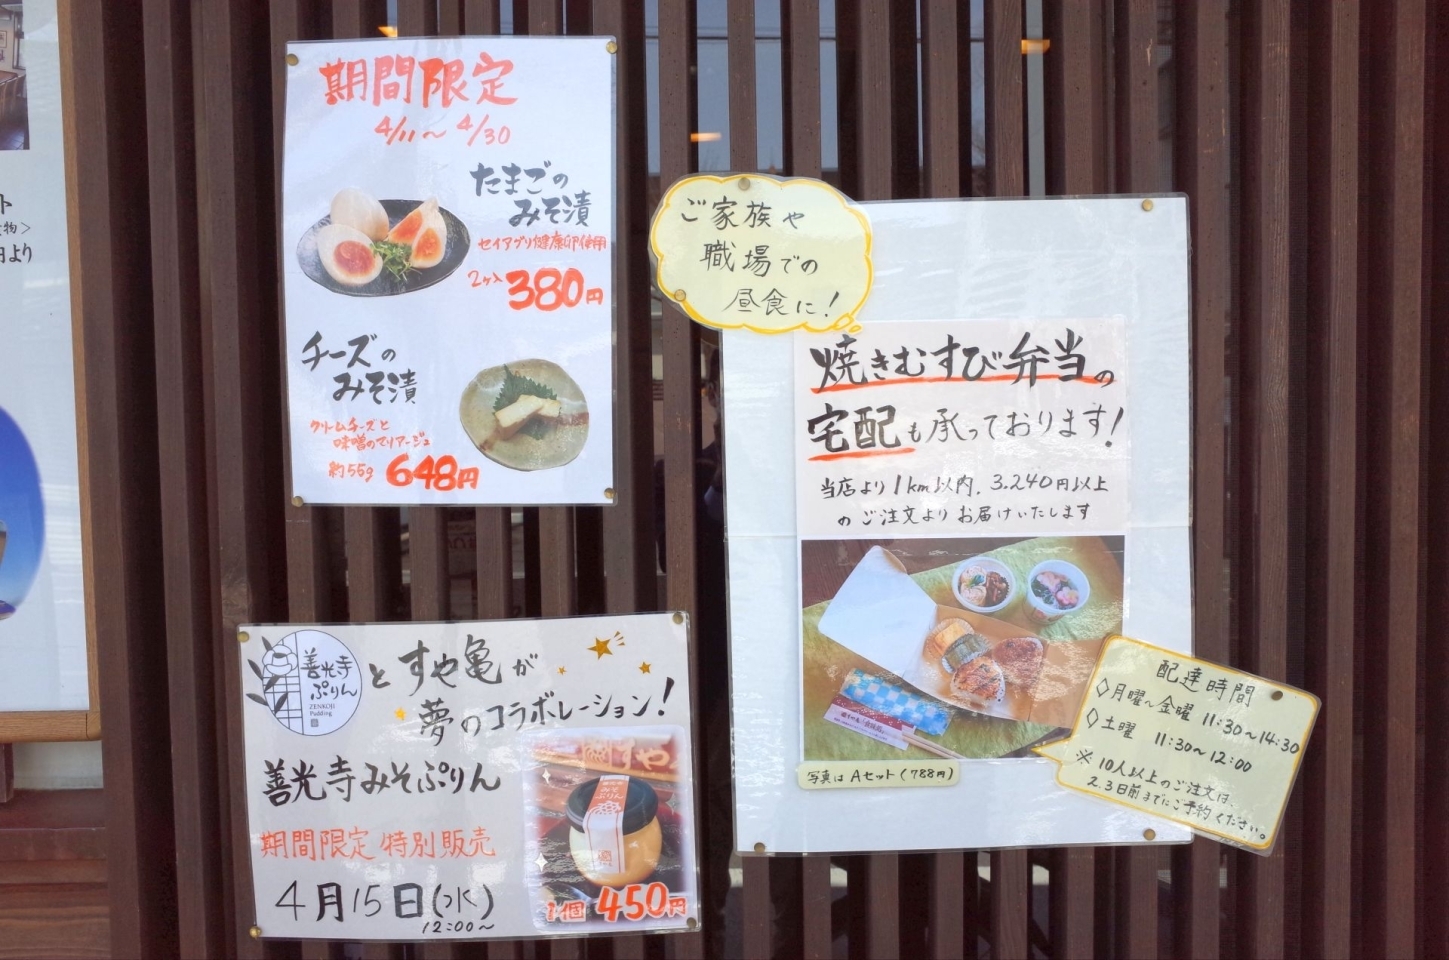 ト
物>
円より
期間限定
4/11〜4/30
たまごの
みそ漬
セイアグリ健康卵使用
2ヶ入 380円
チーズの
みそ漬
クリームチーズと
味噌のマリアージュ
約55g 648円
ご家族や
職場での
昼食に!
焼きむすび弁当の
宅配も承っております!
当店より1km以内、3.240円以上
のご注文よりお届けいたします
写真はAセット(788円)
配達時間
◇月曜〜金曜 11:30〜14:30
◇土曜 11:30〜12:00
※10人以上のご注文は、
2.3日前までにご予約ください。
善光寺
ぷりん
ZENKOJI
Pudding
とすや亀が
夢のコラボレーション!
善光寺みそぷりん
期間限定 特別販売
4月15日(水)
12:00〜
すや
みそ
ぷりん
1個 450円